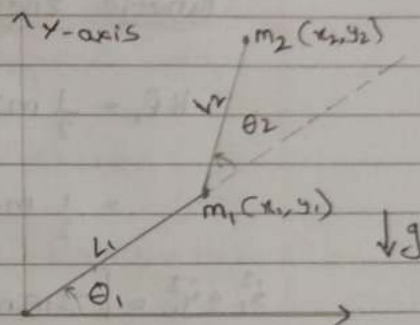 Y-axis
m₂ (x₂,y₂)
L₂
θ₂
m₁ (x₁,y₁)
L₁
g
θ₁